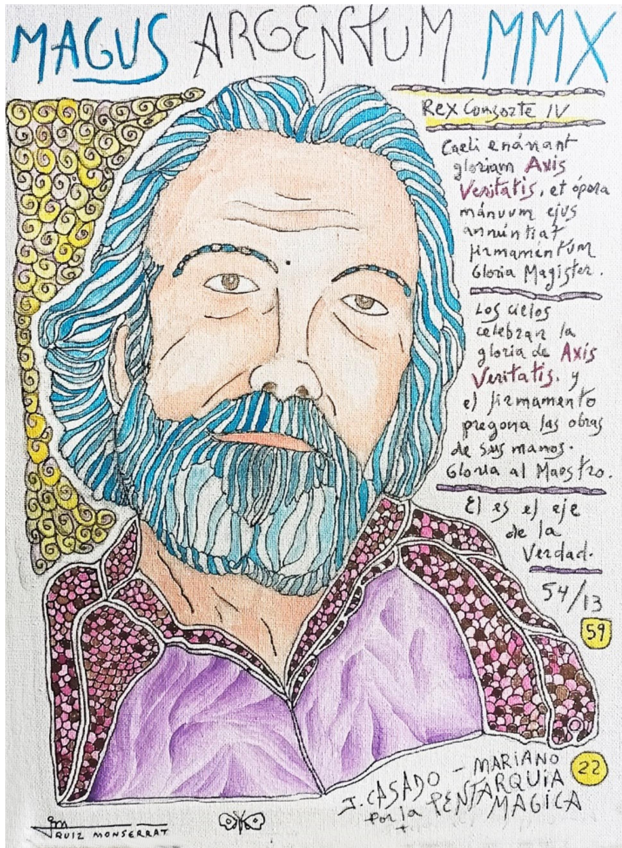 MAGUS ARGENTUM MMX
Rex Consorte IV
Caeli enánant
gloriam Axis
Veritatis, et ópera
mánuum ejus
annúntiat
firmaméntum
Gloria Magister.
Los cielos
celebran la
gloria de Axis
Veritatis. y
el firmamento
pregona las obras
de sus manos.
Gloria al Maestro.
El es el eje
de la
Verdad.
54/13
59
22
J. CASADO - MARIANO
por la PENTARQUIA
MAGICA
RUIZ MONSERRAT